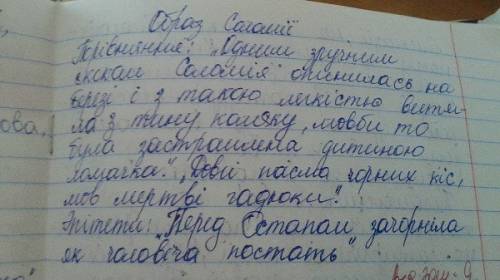 Образ Соломії
Порівняння: „Одним зручним
скоком Соломія опинилась на
березі і з такою легкістю витяг-
ла з тину коляку, мовби то
була застромлена дитиною
ломачка". „Дові пасма чорних кіс,
мов мертві гадюки".
Епітети: „Перед Остапом зачорніла
як чоловіча постать"
ова,